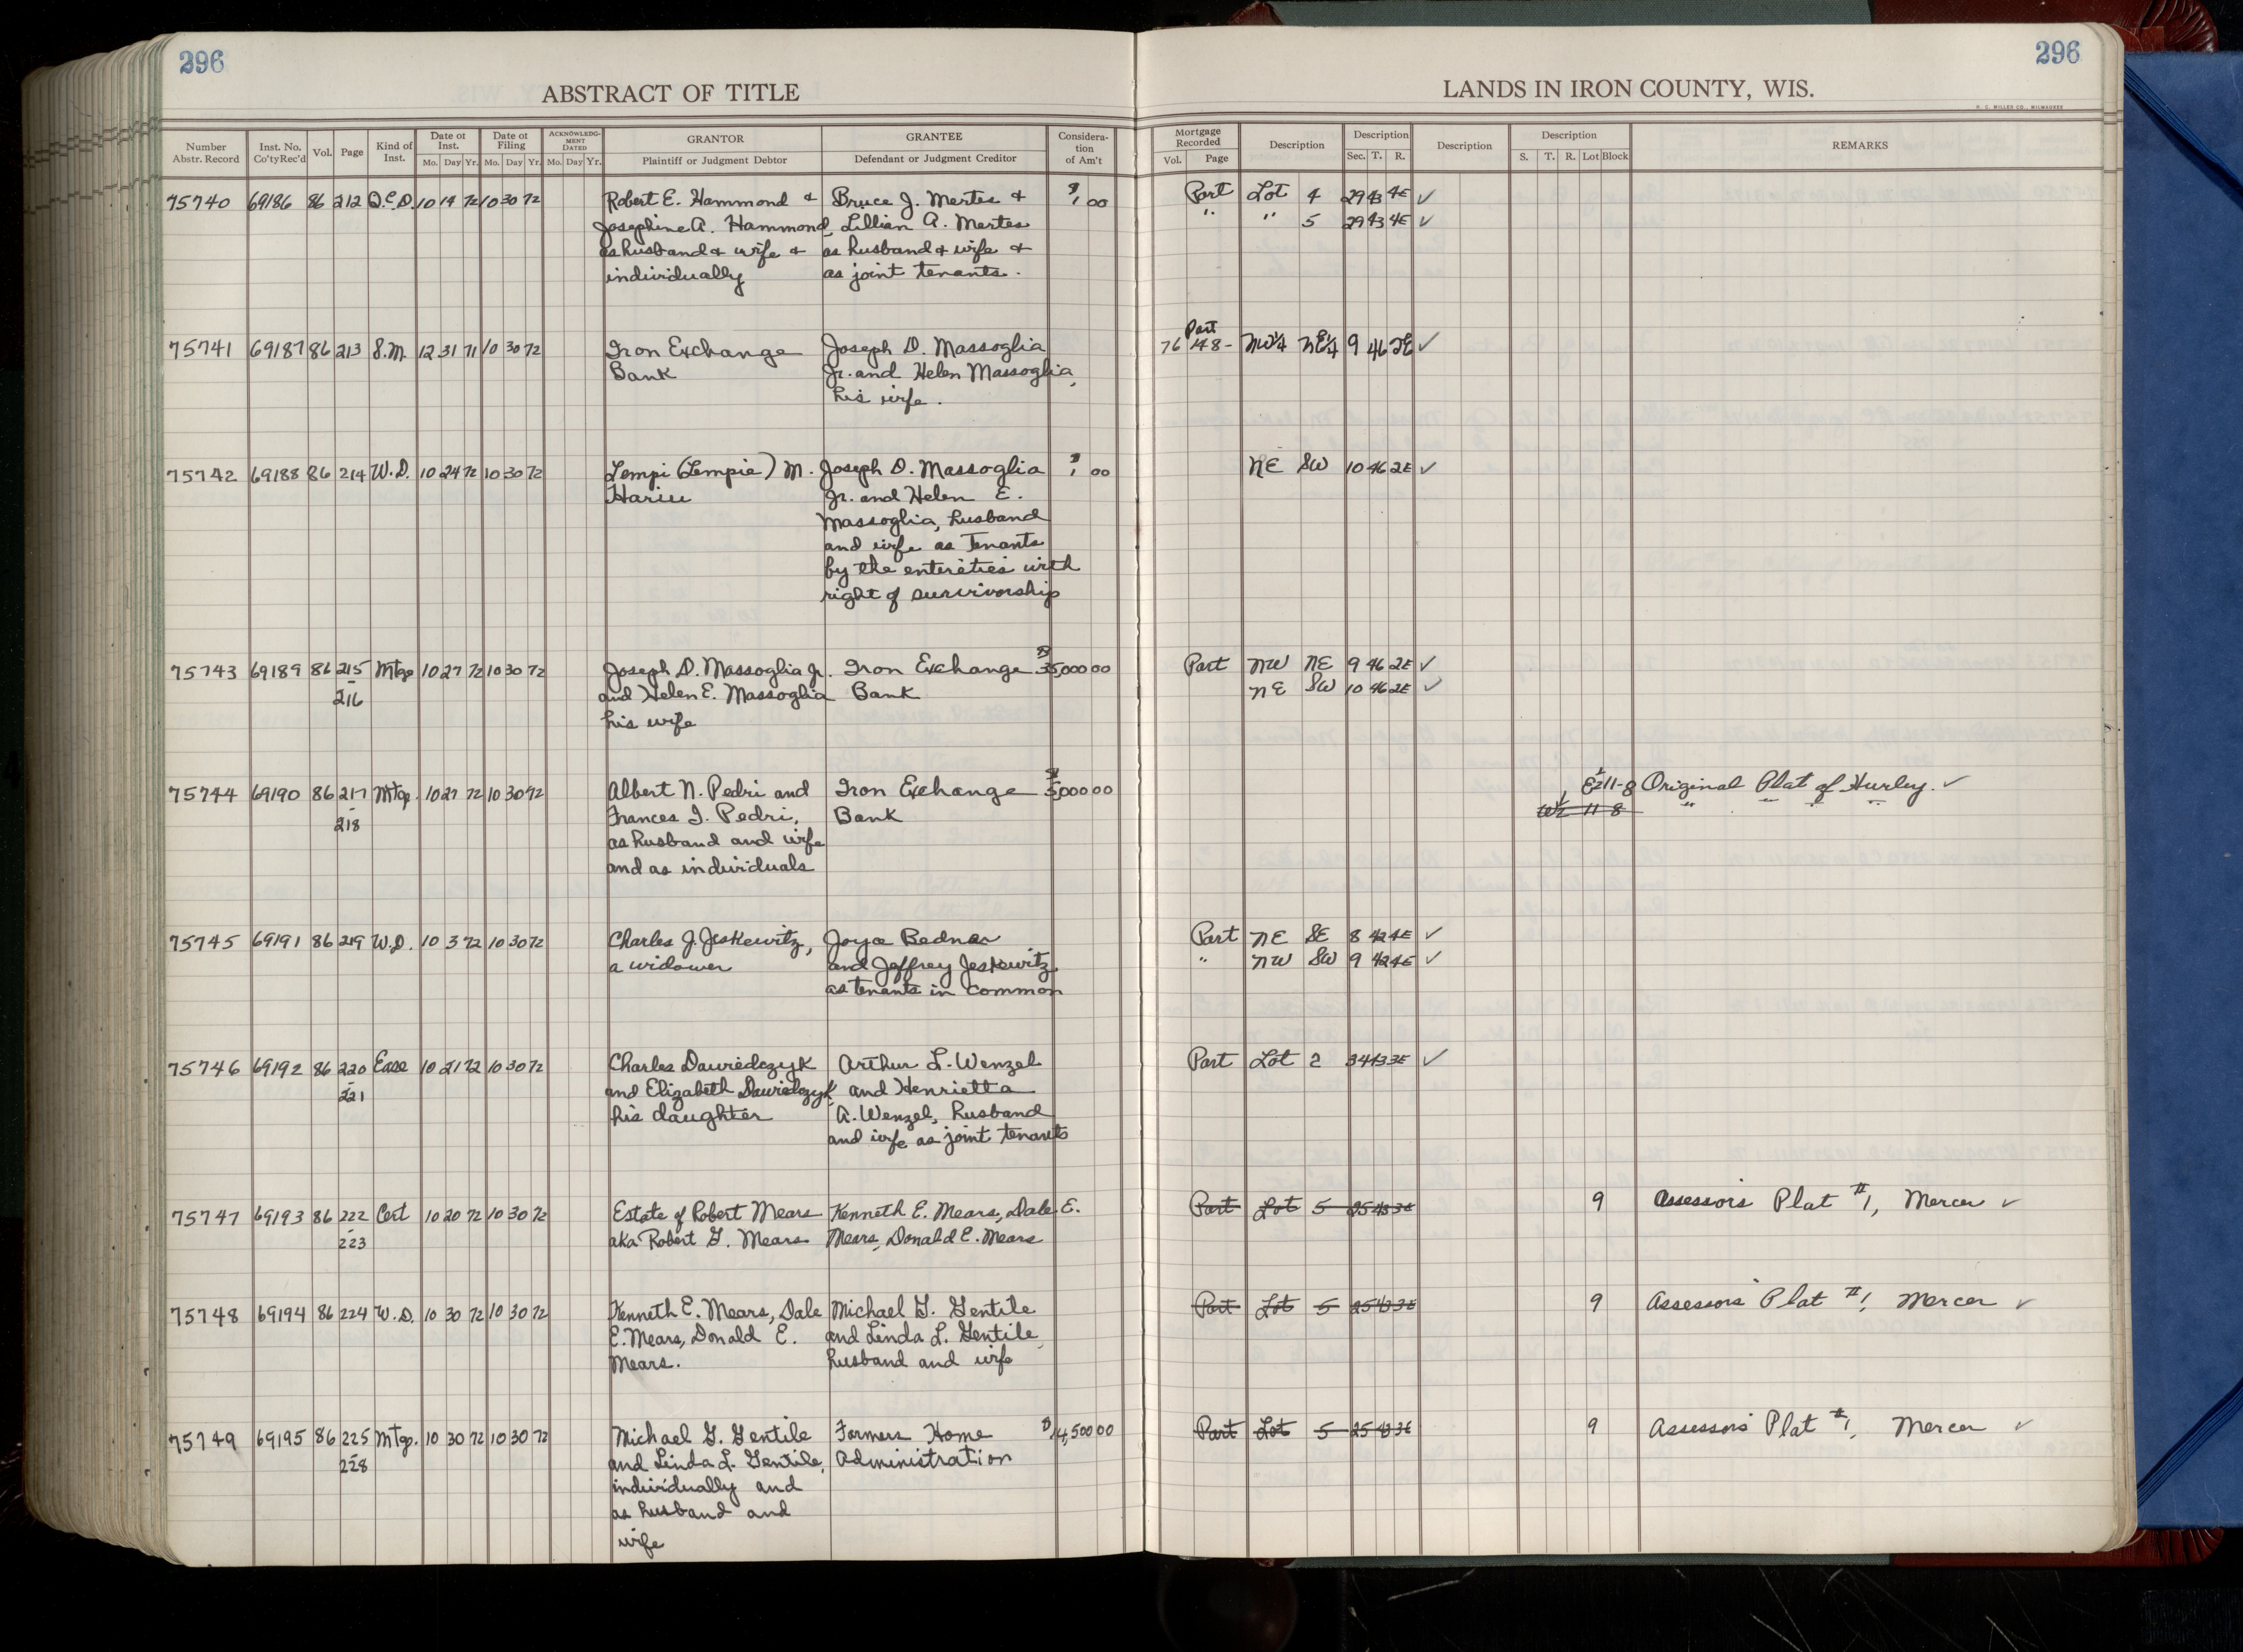 296
296
ABSTRACT OF TITLE
LANDS IN IRON COUNTY, WIS.
H. C. MILLER CO., MILWAUKEE
Number Abstr. Record
Inst. No. Co'ty Rec'd
Vol.
Page
Kind of Inst.
Date of Inst.
Mo. Day Yr.
Date of Filing
Mo. Day Yr.
ACKNOWLEDGMENT DATED
Mo. Day Yr.
GRANTOR
Plaintiff or Judgment Debtor
GRANTEE
Defendant or Judgment Creditor
Consideration of Am't
Mortgage Recorded
Vol. Page
Description
Description
Sec. T. R.
Description
Description
S. T. R. Lot Block
REMARKS
75740 69186 86 212 Q.C.D. 10 19 72 10 30 72 Robert E. Hammond & Bruce J. Mertes & $1 00 Part Lot 4 29 43 4E ✓
Josephine A. Hammond, Lillian A. Mertes " " 5 29 43 4E ✓
as husband & wife & as husband & wife &
individually as joint tenants.
Part
75741 69187 86 213 S.M. 12 31 71 10 30 72 Iron Exchange Joseph D. Massoglia 76 148- NW¼ NE¼ 9 46 2E ✓
Bank Jr. and Helen Massoglia,
his wife.
75742 69188 86 214 W.D. 10 24 72 10 30 72 Lempi (Lempie) M. Joseph D. Massoglia $1 00 NE SW 10 46 2E ✓
Hariu Jr. and Helen E.
Massoglia, husband
and wife as Tenants
by the entireties with
right of survivorship
75743 69189 86 215 Mtge 10 27 72 10 30 72 Joseph D. Massoglia Jr. Iron Exchange $35,000 00 Part NW NE 9 46 2E ✓
- 216 and Helen E. Massoglia Bank NE SW 10 46 2E ✓
his wife
75744 69190 86 217 Mtg. 10 27 72 10 30 72 Albert N. Pedri and Iron Exchange $5,000 00 E½ 11-8 Original Plat of Hurley. ✓
- 218 Frances I. Pedri, Bank W½ 11 8 " " " "
as husband and wife
and as individuals
75745 69191 86 219 W.D. 10 3 72 10 30 72 Charles J. Jeskewitz, Joyce Bednar Part NE SE 8 42 4E ✓
a widower and Jeffrey Jeskewitz " NW SW 9 42 4E ✓
as tenants in common
75746 69192 86 220 Ease 10 21 72 10 30 72 Charles Dawiedczyk Arthur L. Wenzel Part Lot 2 34 43 3E ✓
- 221 and Elizabeth Dawiedczyk and Henrietta
his daughter A. Wenzel, husband
and wife as joint tenants
75747 69193 86 222 Cert 10 20 72 10 30 72 Estate of Robert Mears Kenneth E. Mears, Dale E. Part Lot 5 25 43 3E 9 Assessors Plat #1, Mercer ✓
- 223 aka Robert G. Mears Mears, Donald E. Mears
75748 69194 86 224 W.D. 10 30 72 10 30 72 Kenneth E. Mears, Dale Michael G. Gentile Part Lot 5 25 43 3E 9 Assessors Plat #1, Mercer ✓
E. Mears, Donald E. and Linda L. Gentile,
Mears. husband and wife
75749 69195 86 225 Mtg. 10 30 72 10 30 72 Michael G. Gentile Farmers Home $14,500 00 Part Lot 5 25 43 3E 9 Assessors Plat #1, Mercer ✓
- 228 and Linda L. Gentile, Administration
individually and
as husband and
wife